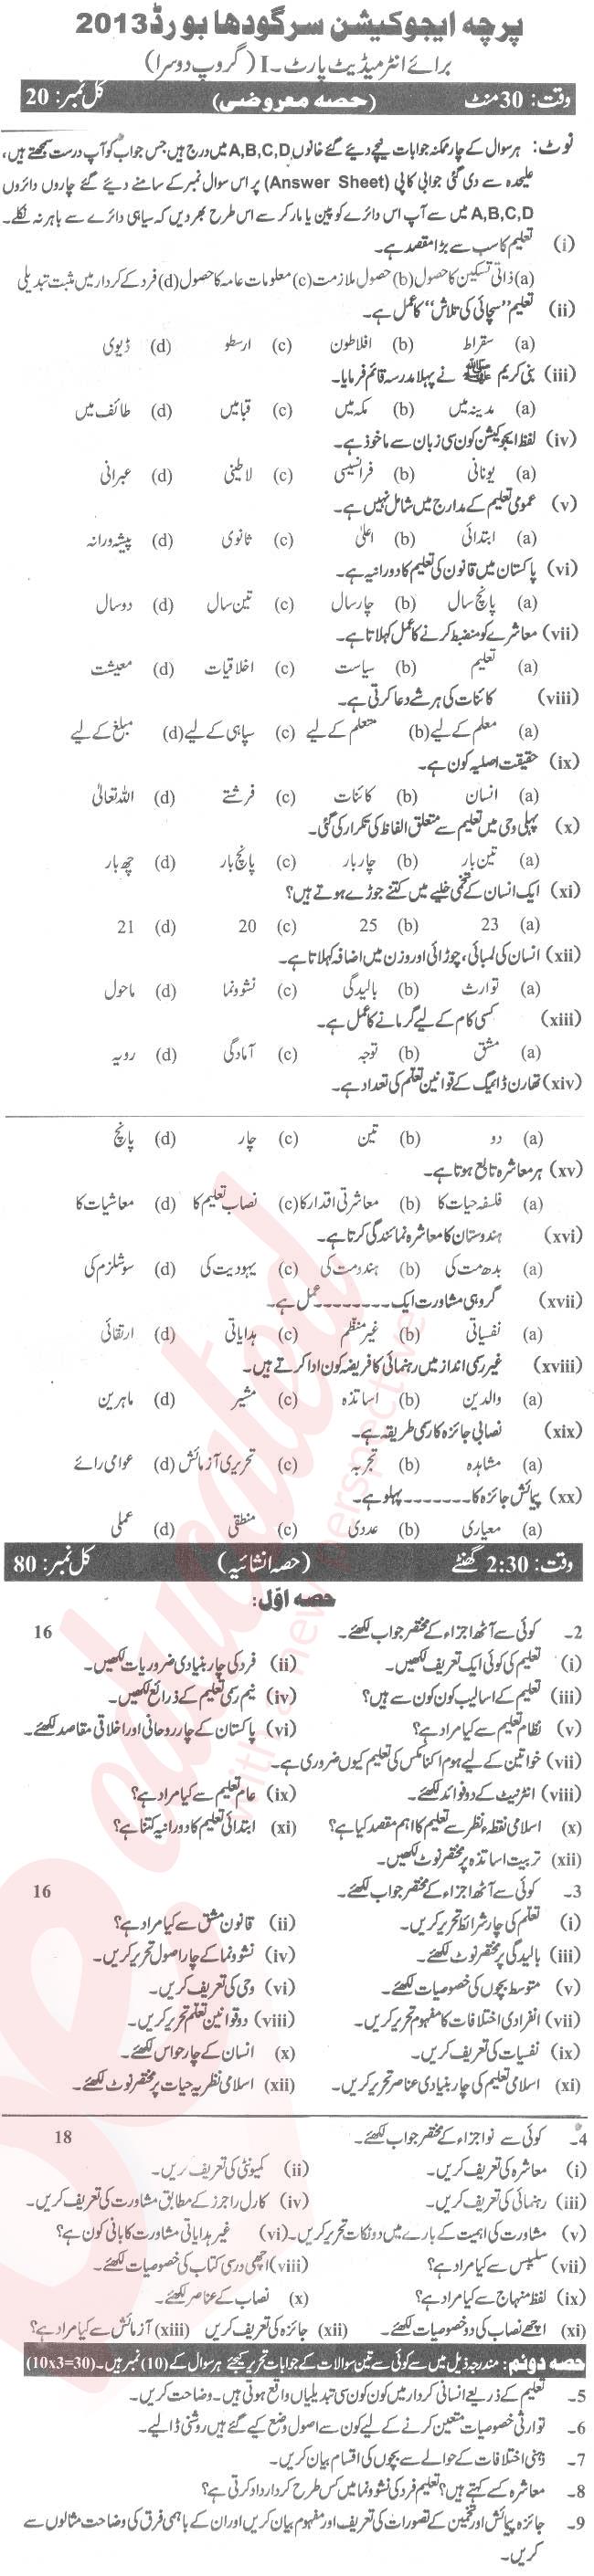 پرچہ ایجوکیشن سرگودھا بورڈ 2013
برائے انٹرمیڈیٹ پارٹ - I (گروپ دوسرا)
وقت: 30 منٹ (حصہ معروضی) کل نمبر: 20
نوٹ: ہر سوال کے چار ممکنہ جوابات نیچے دیئے گئے خانوں A,B,C,D میں درج ہیں جس جواب کو آپ درست سمجھتے ہیں،
علیحدہ سے دی گئی جوابی کاپی (Answer Sheet) پر اس سوال نمبر کے سامنے دیئے گئے چاروں دائروں
A,B,C,D میں سے آپ اس دائرے کو پین یا مارکر سے اس طرح بھر دیں کہ سیاہی دائرے سے باہر نہ نکلے۔
(i) تعلیم کا سب سے بڑا مقصد ہے۔
(a) ذاتی تسکین کا حصول (b) حصول ملازمت (c) معلومات عامہ کا حصول (d) فرد کے کردار میں مثبت تبدیلی
(ii) تعلیم ”سچائی کی تلاش“ کا عمل ہے۔
(a) سقراط (b) افلاطون (c) ارسطو (d) ڈیوی
(iii) نبی کریم ﷺ نے پہلا مدرسہ قائم فرمایا۔
(a) مدینہ میں (b) مکہ میں (c) قبا میں (d) طائف میں
(iv) لفظ ایجوکیشن کون سی زبان سے ماخوذ ہے۔
(a) یونانی (b) فرانسیسی (c) لاطینی (d) عبرانی
(v) عمومی تعلیم کے مدارج میں شامل نہیں ہے۔
(a) ابتدائی (b) اعلیٰ (c) ثانوی (d) پیشہ ورانہ
(vi) پاکستان میں قانون کی تعلیم کا دورانیہ ہے۔
(a) پانچ سال (b) چار سال (c) تین سال (d) دو سال
(vii) معاشرے کو منضبط کرنے کا عمل کہلاتا ہے۔
(a) تعلیم (b) سیاست (c) اخلاقیات (d) معیشت
(viii) کائنات کی ہر شے دعا کرتی ہے۔
(a) معلم کے لیے (b) متعلم کے لیے (c) سپاہی کے لیے (d) مبلغ کے لیے
(ix) حقیقت اصلیہ کون ہے۔
(a) انسان (b) کائنات (c) فرشتے (d) اللہ تعالیٰ
(x) پہلی وحی میں تعلیم سے متعلق الفاظ کی تکرار کی گئی۔
(a) تین بار (b) چار بار (c) پانچ بار (d) چھ بار
(xi) ایک انسان کے تخمی خلیے میں کتنے جوڑے ہوتے ہیں؟
(a) 23 (b) 25 (c) 20 (d) 21
(xii) انسان کی لمبائی، چوڑائی اور وزن میں اضافہ کہلاتا ہے۔
(a) توارث (b) بالیدگی (c) نشوونما (d) ماحول
(xiii) کسی کام کے لیے گرمانے کا عمل ہے۔
(a) مشق (b) توجہ (c) آمادگی (d) رویہ
(xiv) تھارن ڈائیک کے قوانین تعلم کی تعداد ہے۔
(a) دو (b) تین (c) چار (d) پانچ
(xv) ہر معاشرہ تابع ہوتا ہے۔
(a) فلسفہ حیات کا (b) معاشرتی اقدار کا (c) نصاب تعلیم کا (d) معاشیات کا
(xvi) ہندوستان کا معاشرہ نمائندگی کرتا ہے۔
(a) بدھ مت کی (b) ہندومت کی (c) یہودیت کی (d) سوشلزم کی
(xvii) گروہی مشاورت ایک -------- عمل ہے۔
(a) نفسیاتی (b) غیر منظم (c) ہدایاتی (d) ارتقائی
(xviii) غیر رسمی انداز میں رہنمائی کا فریضہ کون ادا کرتے ہیں۔
(a) والدین (b) اساتذہ (c) مشیر (d) ماہرین
(xix) نصابی جائزہ کا رسمی طریقہ ہے۔
(a) مشاہدہ (b) تجربہ (c) تحریری آزمائش (d) عوامی رائے
(xx) پیمائش جائزہ کا ------- پہلو ہے۔
(a) معیاری (b) عددی (c) منطقی (d) عملی
وقت: 2:30 گھنٹے (حصہ انشائیہ) کل نمبر: 80
حصہ اوّل:
2- کوئی سے آٹھ اجزاء کے مختصر جواب لکھئے۔ 16
(i) تعلیم کی کوئی ایک تعریف لکھیں۔ (ii) فرد کی چار بنیادی ضروریات لکھیں۔
(iii) تعلیم کے اسالیب کون کون سے ہیں؟ (iv) نیم رسمی تعلیم کے ذرائع لکھیں۔
(v) نظام تعلیم سے کیا مراد ہے؟ (vi) پاکستان کے چار روحانی اور اخلاقی مقاصد لکھئے۔
(vii) خواتین کے لیے ہوم اکنامکس کی تعلیم کیوں ضروری ہے۔
(viii) انٹرنیٹ کے دو فوائد لکھئے۔ (ix) عام تعلیم سے کیا مراد ہے؟
(x) اسلامی نقطہء نظر سے تعلیم کا اہم مقصد کیا ہے؟ (xi) ابتدائی تعلیم کا دورانیہ کتنا ہے؟
(xii) تربیت اساتذہ پر مختصر نوٹ لکھیں۔
3- کوئی سے آٹھ اجزاء کے مختصر جواب لکھئے۔ 16
(i) تعلم کی چار شرائط تحریر کریں۔ (ii) قانون مشق سے کیا مراد ہے؟
(iii) بالیدگی پر مختصر نوٹ لکھئے۔ (iv) نشوونما کے چار اصول تحریر کریں۔
(v) متوسط بچوں کی خصوصیات لکھئے۔ (vi) وحی کی تعریف کریں۔
(vii) انفرادی اختلافات کا مفہوم تحریر کریں۔ (viii) دو قوانین تعلم تحریر کریں۔
(ix) نفسیات کی تعریف کریں۔ (x) انسان کے چار حواس لکھئے۔
(xi) اسلامی تعلیم کی چار بنیادی عناصر تحریر کریں۔ (xii) اسلامی نظریہ حیات پر مختصر نوٹ لکھئے۔
4- کوئی سے نو اجزاء کے مختصر جواب لکھئے۔ 18
(i) معاشرہ کی تعریف کریں۔ (ii) کمیونٹی کی تعریف کریں۔
(iii) رہنمائی کی تعریف کریں۔ (iv) کارل راجرز کے مطابق مشاورت کی تعریف کریں۔
(v) مشاورت کی اہمیت کے بارے میں دو نکات تحریر کریں۔ (vi) غیر ہدایاتی مشاورت کا بانی کون ہے؟
(vii) سلیبس سے کیا مراد ہے؟ (viii) اچھی درسی کتاب کی خصوصیات لکھئے۔
(ix) لفظ منہاج سے کیا مراد ہے؟ (x) نصاب کے عناصر لکھئے۔
(xi) اچھے نصاب کی دو خصوصیات لکھئے۔ (xii) جائزہ کی تعریف کریں (xiii) آزمائش سے کیا مراد ہے؟
حصہ دوئم: مندرجہ ذیل میں سے کوئی سے تین سوالات کے جوابات تحریر کیجئے ہر سوال کے (10) نمبر ہیں۔ (10x3=30)
5- تعلیم کے ذریعے انسانی کردار میں کون کون سی تبدیلیاں واقع ہوتی ہیں۔ وضاحت کریں۔
6- توارثی خصوصیات متعین کرنے کے لیے کون سے اصول وضع کیے گئے ہیں روشنی ڈالیے۔
7- ذہنی اختلافات کے حوالے سے بچوں کی اقسام بیان کریں۔
8- معاشرہ کسے کہتے ہیں؟ تعلیم فرد کی نشوونما میں کس طرح کردار ادا کرتی ہے؟
9- جائزہ پیمائش اور تخمین کے تصورات کی تعریف اور مفہوم بیان کریں اور ان کے باہمی فرق کی وضاحت مثالوں سے
کریں۔
educated
with a new perspective